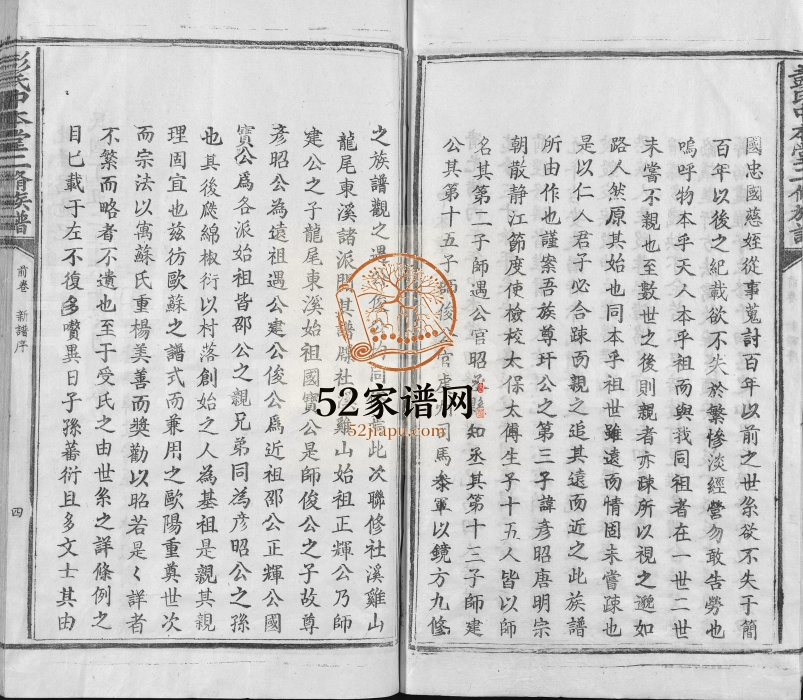 國忠國慈姪從事蒐討百年以前之世系欲不失于簡
百年以後之紀載欲不失於繁慘淡經營勿敢告勞也
嗚呼物本乎天人本乎祖而與我同祖者在一世二世
未嘗不親也至數世之後則親者亦疎所以視之邈如
路人然原其始也同本乎祖世雖遠而情固未嘗疎也
是以仁人君子必合疎而親之追其遠而近之此族譜
所以作也謹案吾族尊玕公之第三子諱彥昭唐明宗
朝散静江節度使檢校太保太傅生子十五人皆以師
名其第二子師遇公官昭知丞其第十三子師建
公其第十五子師俊公官司馬叅軍以鏡方九修
之族譜觀之遇俊公同此次聯修社溪雞山
龍尾東溪諸派其譜社雞山始祖正輝公乃師
建公之子龍尾東溪始祖國寶公是師俊公之子故尊
彥昭公為遠祖遇公建公俊公爲近祖邵公正輝公國
寶公爲各派始祖皆邵公之親兄弟同為彥昭公之孫
也其後瓞綿椒衍以村落創始之人為基祖是親其親
理固宜也兹仿歐蘇之譜式而兼用之歐陽重奠世次
而宗法以寓蘇氏重楊美善而奬勸以昭若是く詳者
不繁而略者不遺也至于受氏之由世系之詳條例之
目已載于左不復多嚽異日子孫蕃衍且多文士其由
彭氏中本堂三脩族譜
前卷 新譜序
四
52家谱网
52jiapu.com